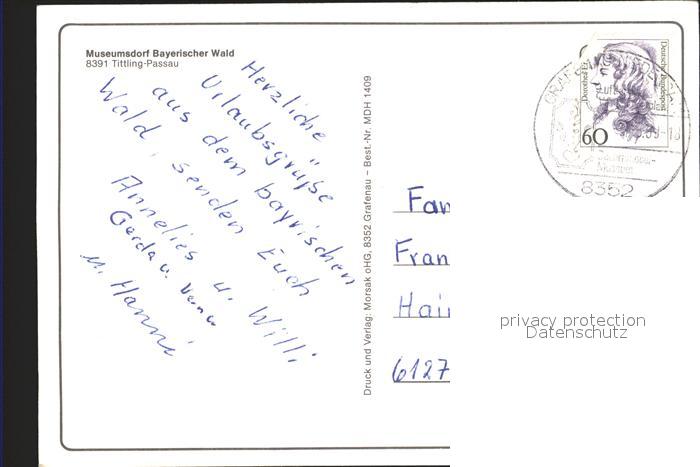 Museumsdorf Bayerischer Wald
8391 Tittling-Passau
Herzliche
Urlaubsgrüße
aus dem bayrischen
Wald, senden Euch
Annelies u. Willi
Gerda u.
u. Hanni
Druck und Verlag: Morsak oHG, 8352 Grafenau – Best.-Nr. MDH 1409
Deutsche Bundespost
60
8352
Fam
Fran
Hai
6127
privacy protection
Datenschutz